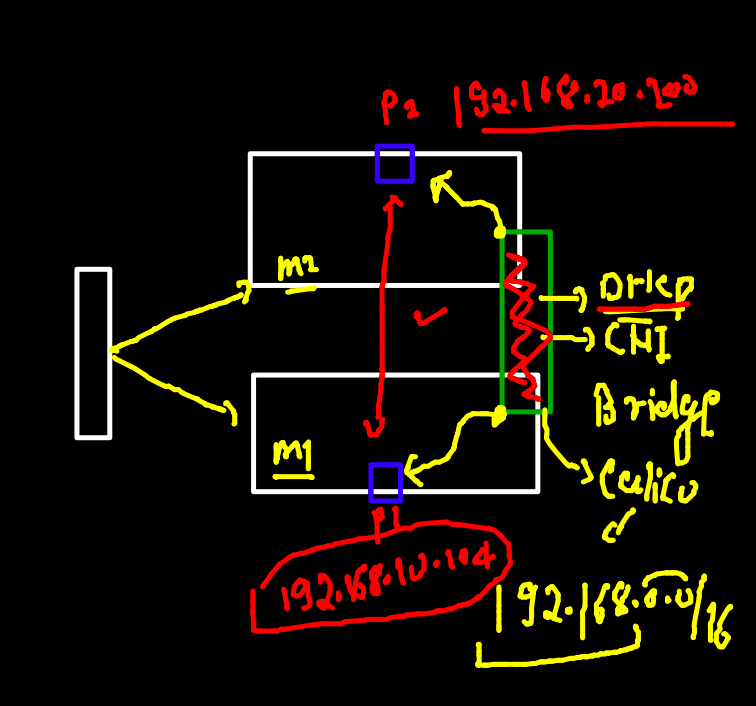 P2 192.168.20.200
M2
DHCP
CNI
Bridge
M1
Calico
P1
192.168.10.104
192.168.0.0/16